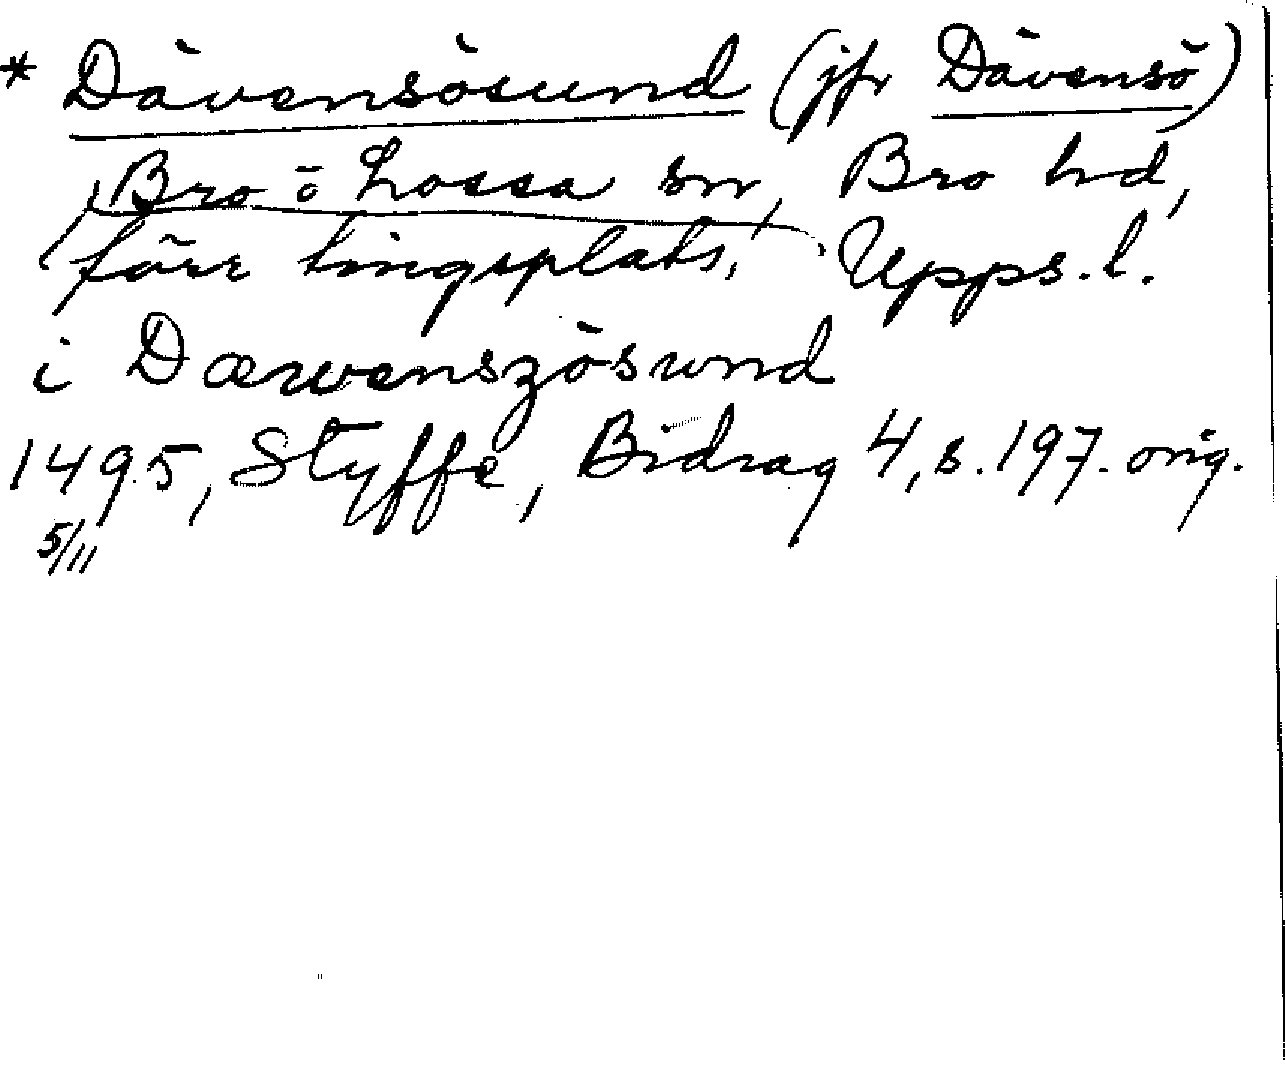 * Dävensösund (jfr Dävensö)
Bro o Lossa snr, Bro hd,
förr tingsplats, Upps. l.
i Dæwenszösund
1495, Styffe, Bidrag 4, s. 197. orig.
5/11